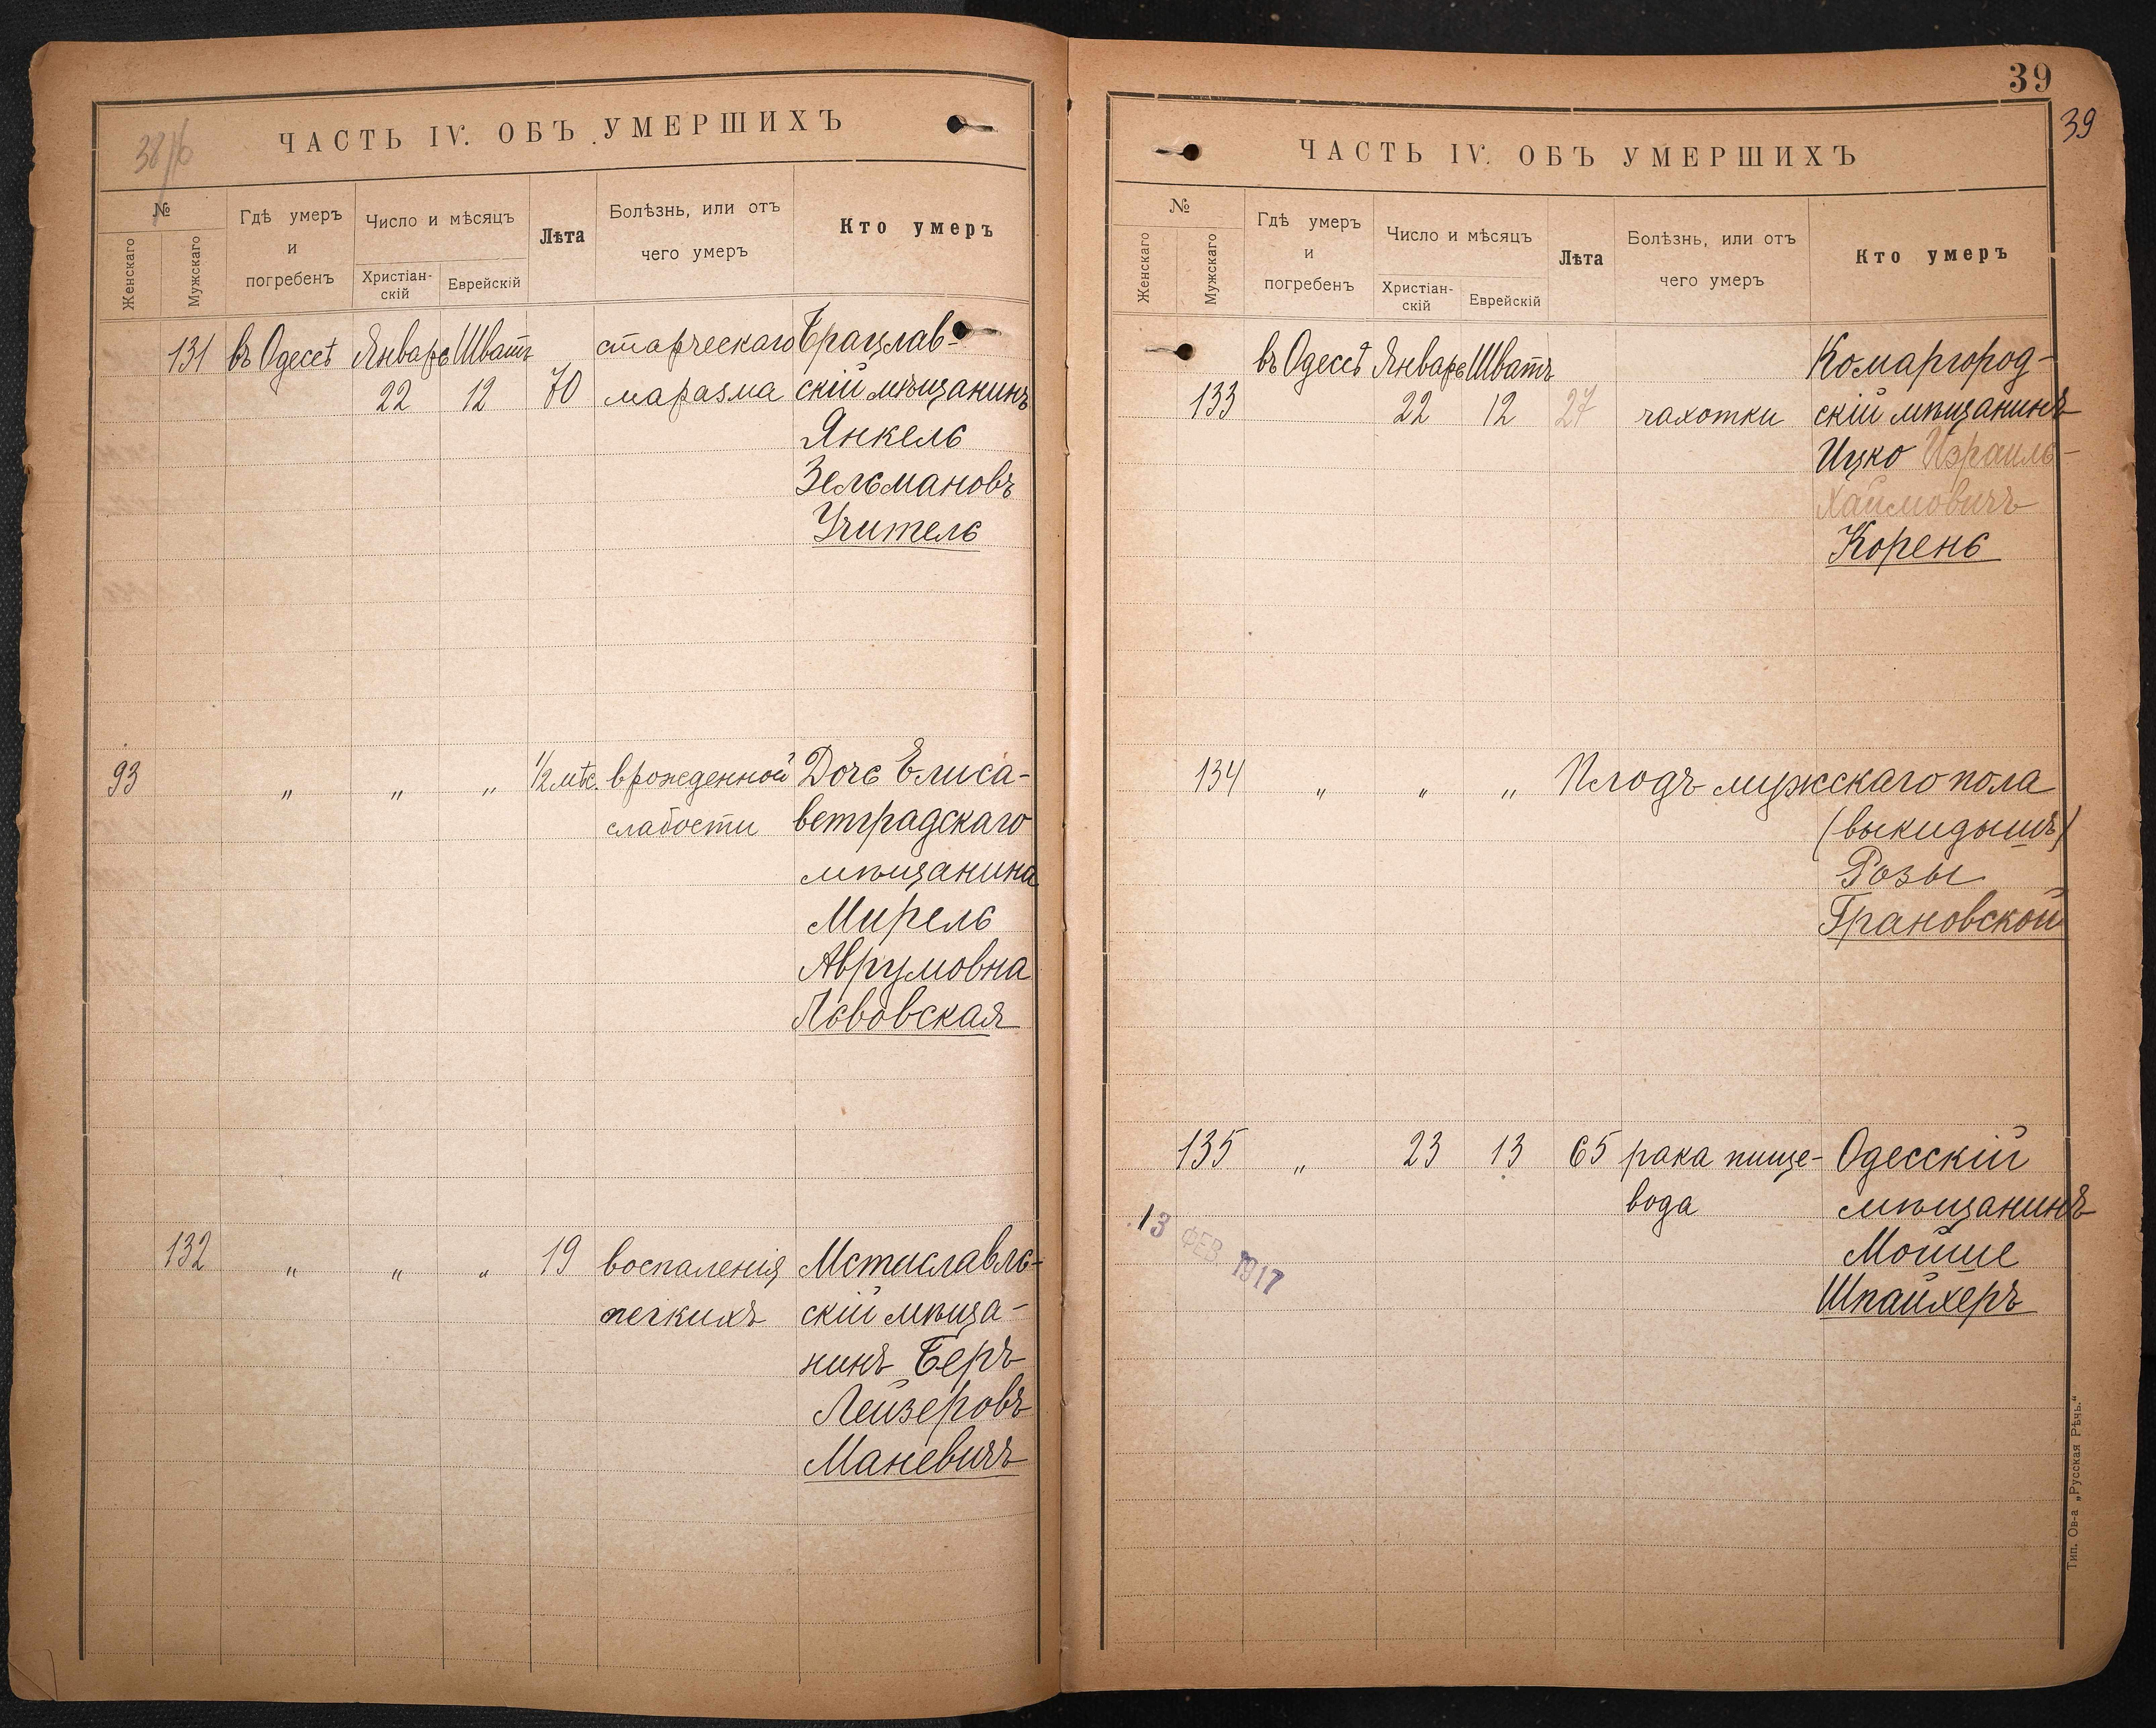 38/б
ЧАСТЬ IV. ОБЪ УМЕРШИХЪ
№
Женскаго
Мужскаго
Гдѣ умеръ
и
погребенъ
Число и мѣсяцъ
Христіан-
скій
Еврейскій
Лѣта
Болѣзнь, или отъ
чего умеръ
Кто умеръ
131 въ Одессѣ Январь Шватъ старческаго Брацлав-
22 12 70 маразма скій мѣщанинъ
Янкель
Зельмановъ
Учитель
93 " " " 1/2 мѣс. врожденной Дочь Елиса-
слабости ветградскаго
мѣщанина
Мирель
Аврумовна
Львовская
132 " " " 19 воспаленія Мстиславль-
легкихъ скій мѣща-
нинъ Беръ
Лейзеровъ
Маневичъ
39
39
ЧАСТЬ IV. ОБЪ УМЕРШИХЪ
№
Женскаго
Мужскаго
Гдѣ умеръ
и
погребенъ
Число и мѣсяцъ
Христіан-
скій
Еврейскій
Лѣта
Болѣзнь, или отъ
чего умеръ
Кто умеръ
въ Одессѣ Январь Шватъ Комаргород-
133 22 12 27 чахотки скій мѣщанинъ
Ицко Израиль-
Хаимовичъ
Корень
134 " " " Плодъ мужскаго пола
(выкидышъ)
Розы
Грановской
135 " 23 13 65 рака пище- Одесскій
вода мѣщанинъ
Мойше
Шпайхеръ
13 ФЕВ. 1917
Тип. Ов-а „Русская Рѣчь."